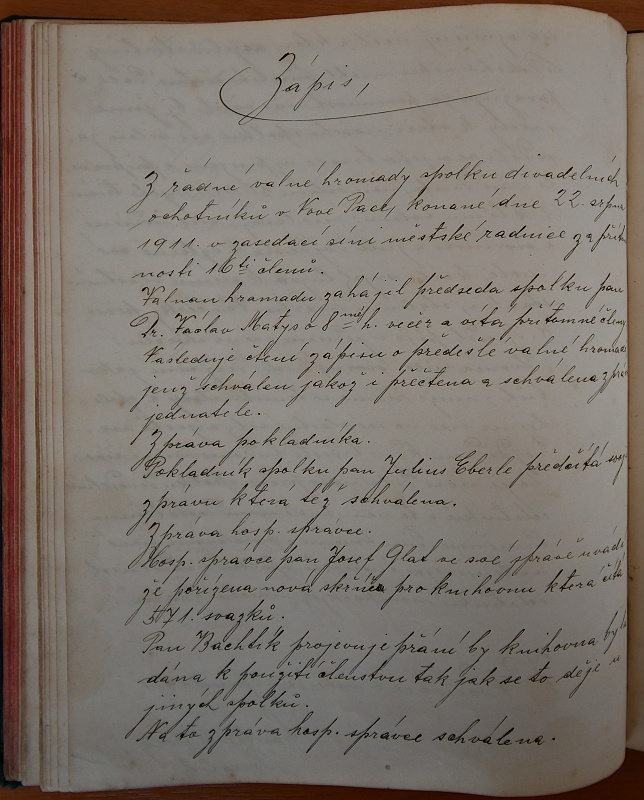 Zápis,
Z řádné valné hromady spolku divadelních
ochotníků v Nové Pace, konané dne 22. srpna
1911. v zasedací síni městské radnice za příto
nosti 16ti členů.
Valnou hromadu zahájil předseda spolku pan
Dr. Václav Matys o 8mé h. večer a vítá přítomné členy
Následuje čtení zápisu o předešlé valné hromadě
jenž schválen jakož i přečtena a schválena zpráva
jednatele.
Zpráva pokladníka.
Pokladník spolku pan Julius Eberle předčítá svoji
zprávu která též schválena.
Zpráva hosp. správce.
Hosp. správce pan Josef Glat ve své správě uvádí
že pořízena nová skříňa pro knihovnu která čítá
571. svazků.
Pan Bachtík projevuje přání by knihovna byla
dána k použití členstvu tak jak se to děje u
jiných spolků.
Na to zpráva hosp. správce schválena.